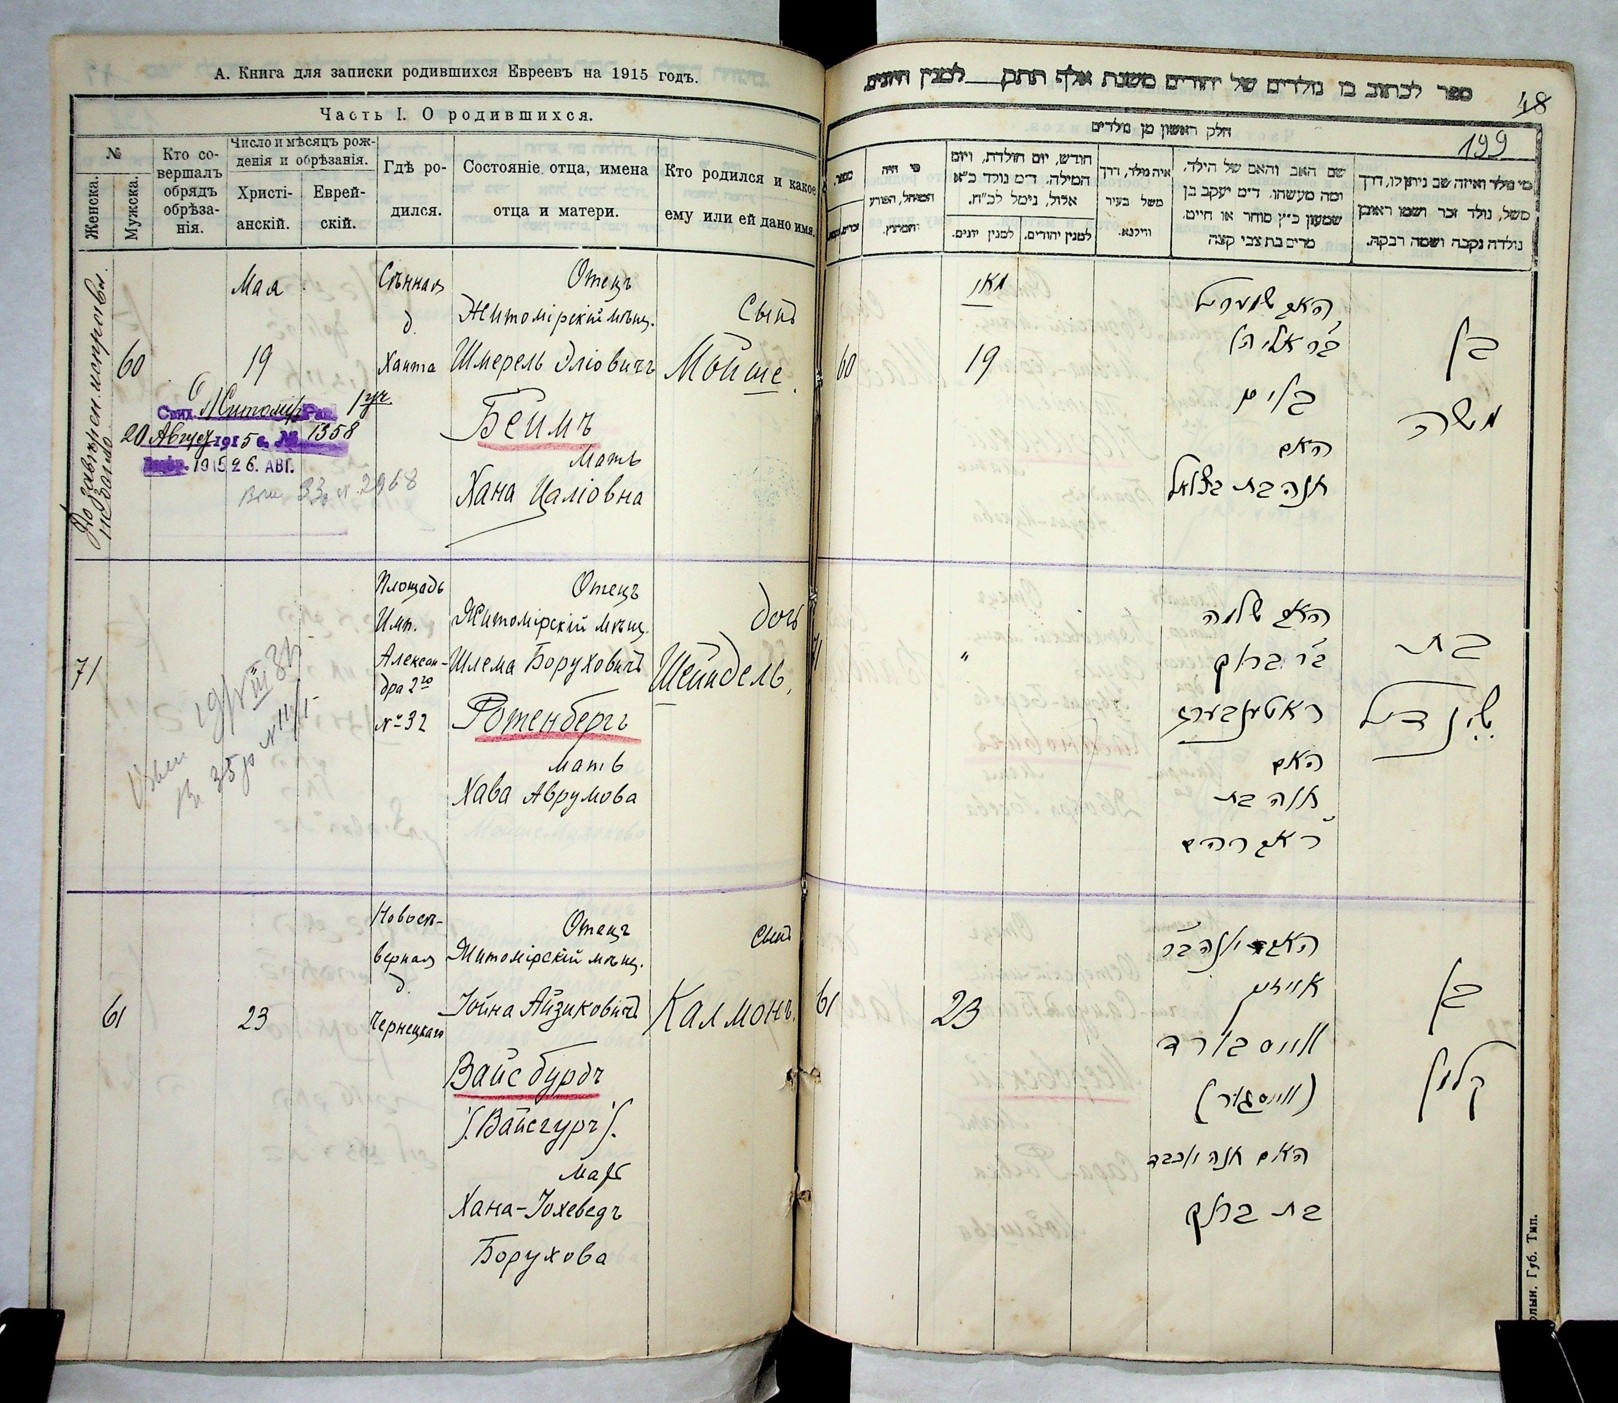 А. Книга для записки родившихся Евреевъ на 1915 годъ.
Часть I. О родившихся.
№
Женска.
Мужска.
Кто со-
вершалъ
обрядъ
обрѣза-
нія.
Число и мѣсяцъ рож-
денія и обрѣзанія.
Христі-
анскій.
Еврей-
скій.
Гдѣ ро-
дился.
Состояніе отца, имена
отца и матери.
Кто родился и какое
ему или ей дано имя.
60
Мая
19
Сѣнная
д.
Ханта
Отецъ
Житомірскій мѣщ.
Шмерель Эліовичъ
Беимъ
Мать
Хана Цаліовна
Сынъ
Мойше.
20 Август 1915 г. № 1358
1915 26. АВГ.
71
Площадь
Имп.
Алексан-
дра 2го
№ 32
Отецъ
Житомірскій мѣщ.
Шлема Боруховичъ
Ротенбергъ
мать
Хава Аврумова
дочь
Шейндель.
61
23
Новосѣ-
верная
д.
Чернецкаго
Отецъ
Житомірскій мѣщ.
Іойна Айзиковичъ
Вайсбурдъ
/.Вайсгуръ/.
мать
Хана-Іохеведъ
Борухова
Сынъ
Калмонъ.
ספר לכתוב בו נולדים של יהודים משנת אלף תתק למנין היונים
48
199
חלק ראשון מן נולדים
מי נולד ואיזה שם ניתן לו, דרך
משל, נולד זכר ושמו ראובן
נולדה נקבה ושמה רבקה.
שם האב והאם של הילד,
ומה מעשהו. ד״מ יעקב בן
שמעון כ״ץ סוחר או חיים.
מרים בת צבי קצה
איה נולד, דרך
משל בעיר
ווילנא.
חודש, יום הולדת, ויום
המילה. ד״מ נולד כ״א
אלול, נימל לכ״ח.
למנין יהודים.
למנין יונים.
מי היה
המוהל, הפורע
והמוצץ.
מספר.
60
מאי
19
האב שמערל
ב״ר אליהו
ביים
האם
חנה בת בצלאל
בן
משה
71
"
האב שלמה
ב״ר ברוך
ראטענבערג
האם
חוה בת
ר׳ אברהם
בת
שיינדיל
61
23
האב יונה ב״ר
אייזיק
ווייסבורד
(ווייסגור)
האם חנה יוכבד
בת ברוך
בן
קלמן
Волын. Губ. Тип.